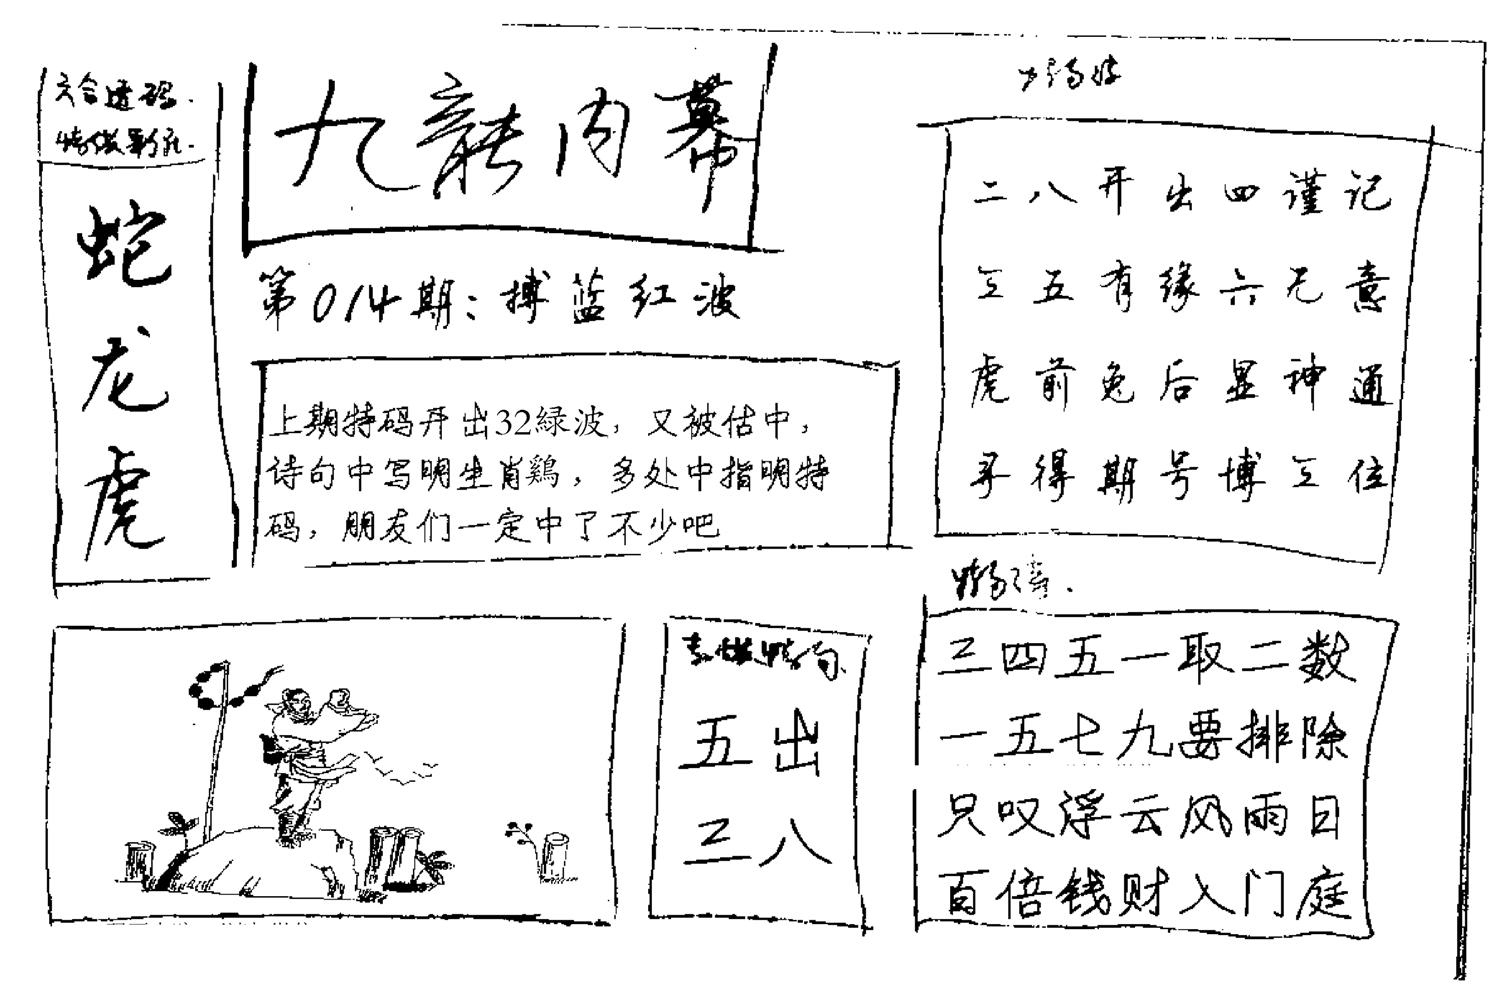 六合透码.
九龙内幕
蛇
龙
虎
第014期：搏蓝红波
上期特码开出32緑波，又被估中，
诗句中写明生肖鷄，多处中指明特
码，朋友们一定中了不少吧
二八开出四谨记
三五有缘六无意
虎前兔后显神通
寻得期号博三位
五出
三八
三四五一取二数
一五七九要排除
只叹浮云风雨日
百倍钱财入门庭